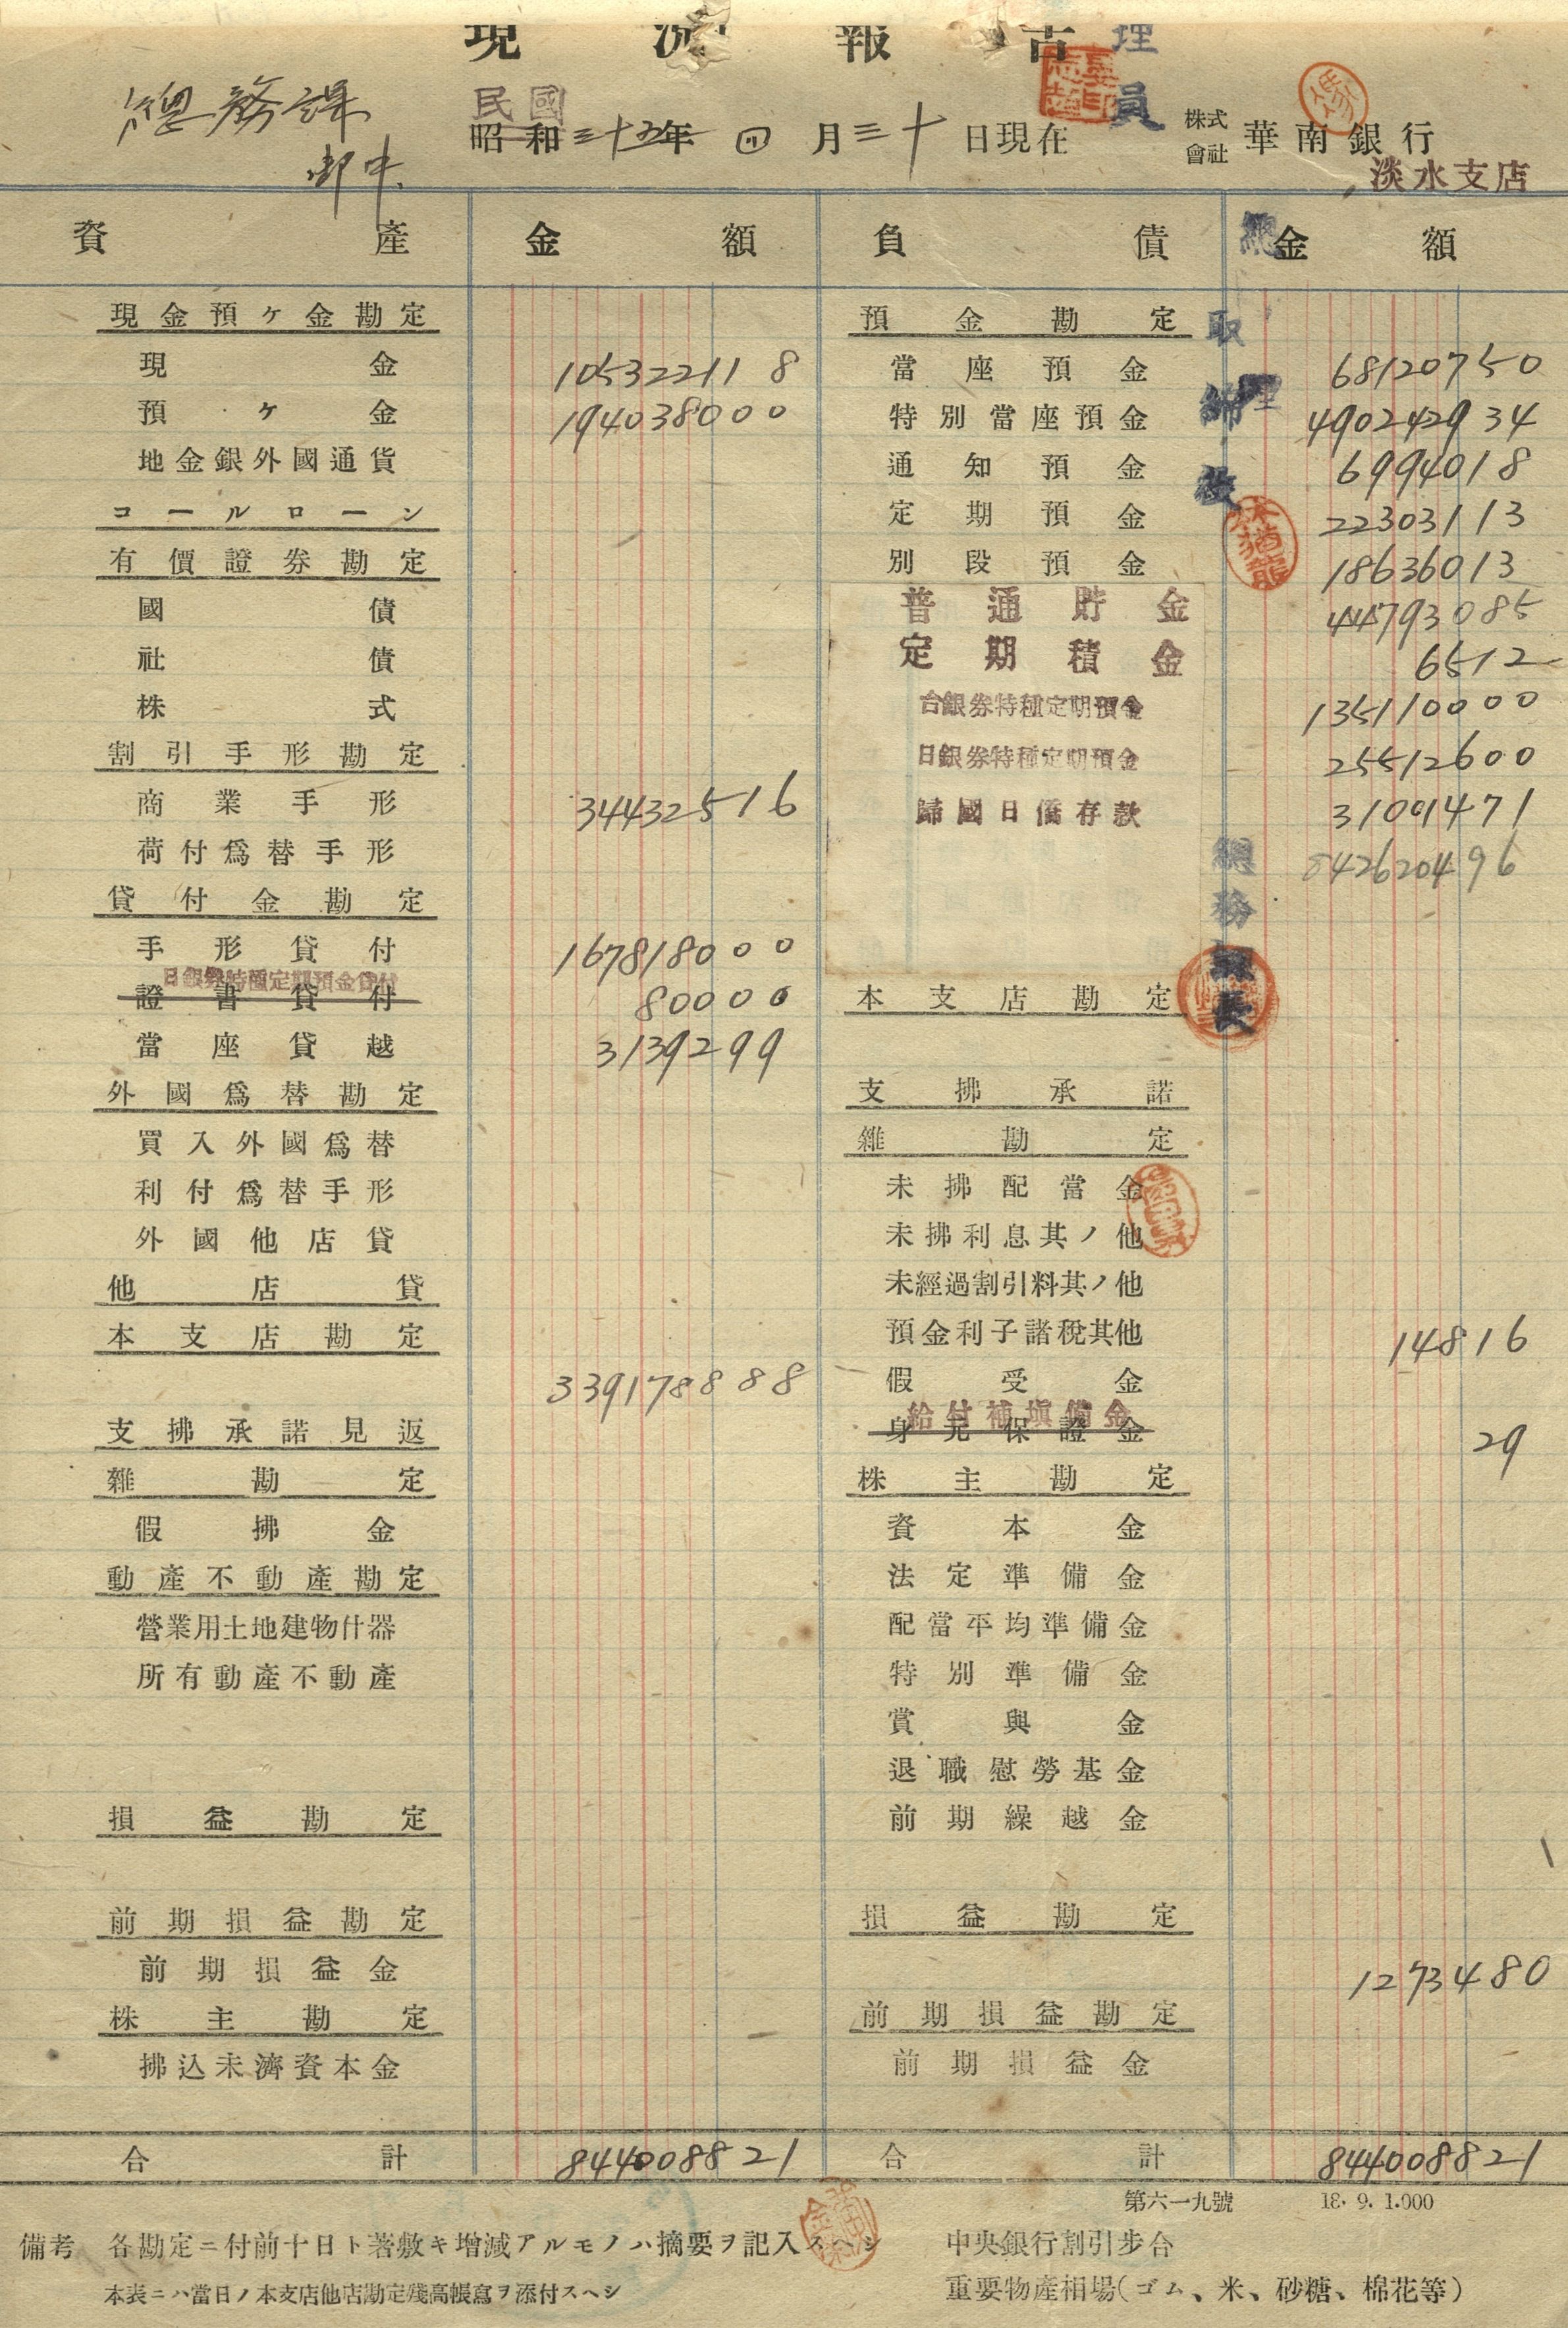 現況報告
理員
總務課
御中
民國
昭和三十五年 四月三十日現在
株式會社 華南銀行
淡水支店
資產 金額 負債 金額
現金預ケ金勘定
現金 1053221 18
預ケ金 1940380 00
地金銀外國通貨
コールローン
有價證券勘定
國債
社債
株式
割引手形勘定
商業手形 344325 16
荷付爲替手形
貸付金勘定
手形貸付 1678180 00
日銀券特種定期預金貸付
證書貸付 800 00
當座貸越 31392 99
外國爲替勘定
買入外國爲替
利付爲替手形
外國他店貸
他店貸
本支店勘定
3391788 88
支拂承諾見返
雜勘定
假拂金
動產不動產勘定
營業用土地建物什器
所有動產不動產
損益勘定
前期損益勘定
前期損益金
株主勘定
拂込未濟資本金
合計 8440088 21
預金勘定
當座預金 681207 50
特別當座預金 4902429 34
通知預金 69940 18
定期預金 223031 13
別段預金 186360 13
普通貯金 447930 85
定期積金 65 12
台銀券特種定期預金 1351100 00
日銀券特種定期預金 255126 00
歸國日僑存款 310914 71
8426204 96
本支店勘定
支拂承諾
雜勘定
未拂配當金
未拂利息其ノ他
未經過割引料其ノ他
預金利子諸稅其他 148 16
假受金
給付補塡備金
身元保證金 29
株主勘定
資本金
法定準備金
配當平均準備金
特別準備金
賞與金
退職慰勞基金
前期繰越金
損益勘定
12734 80
前期損益勘定
前期損益金
合計 8440088 21
總務課長
第六一九號 18. 9. 1.000
備考 各勘定ニ付前十日ト著敷キ增減アルモノハ摘要ヲ記入スヘシ
本表ニハ當日ノ本支店他店勘定殘高帳寫ヲ添付スヘシ
中央銀行割引步合
重要物產相場(ゴム、米、砂糖、棉花等)